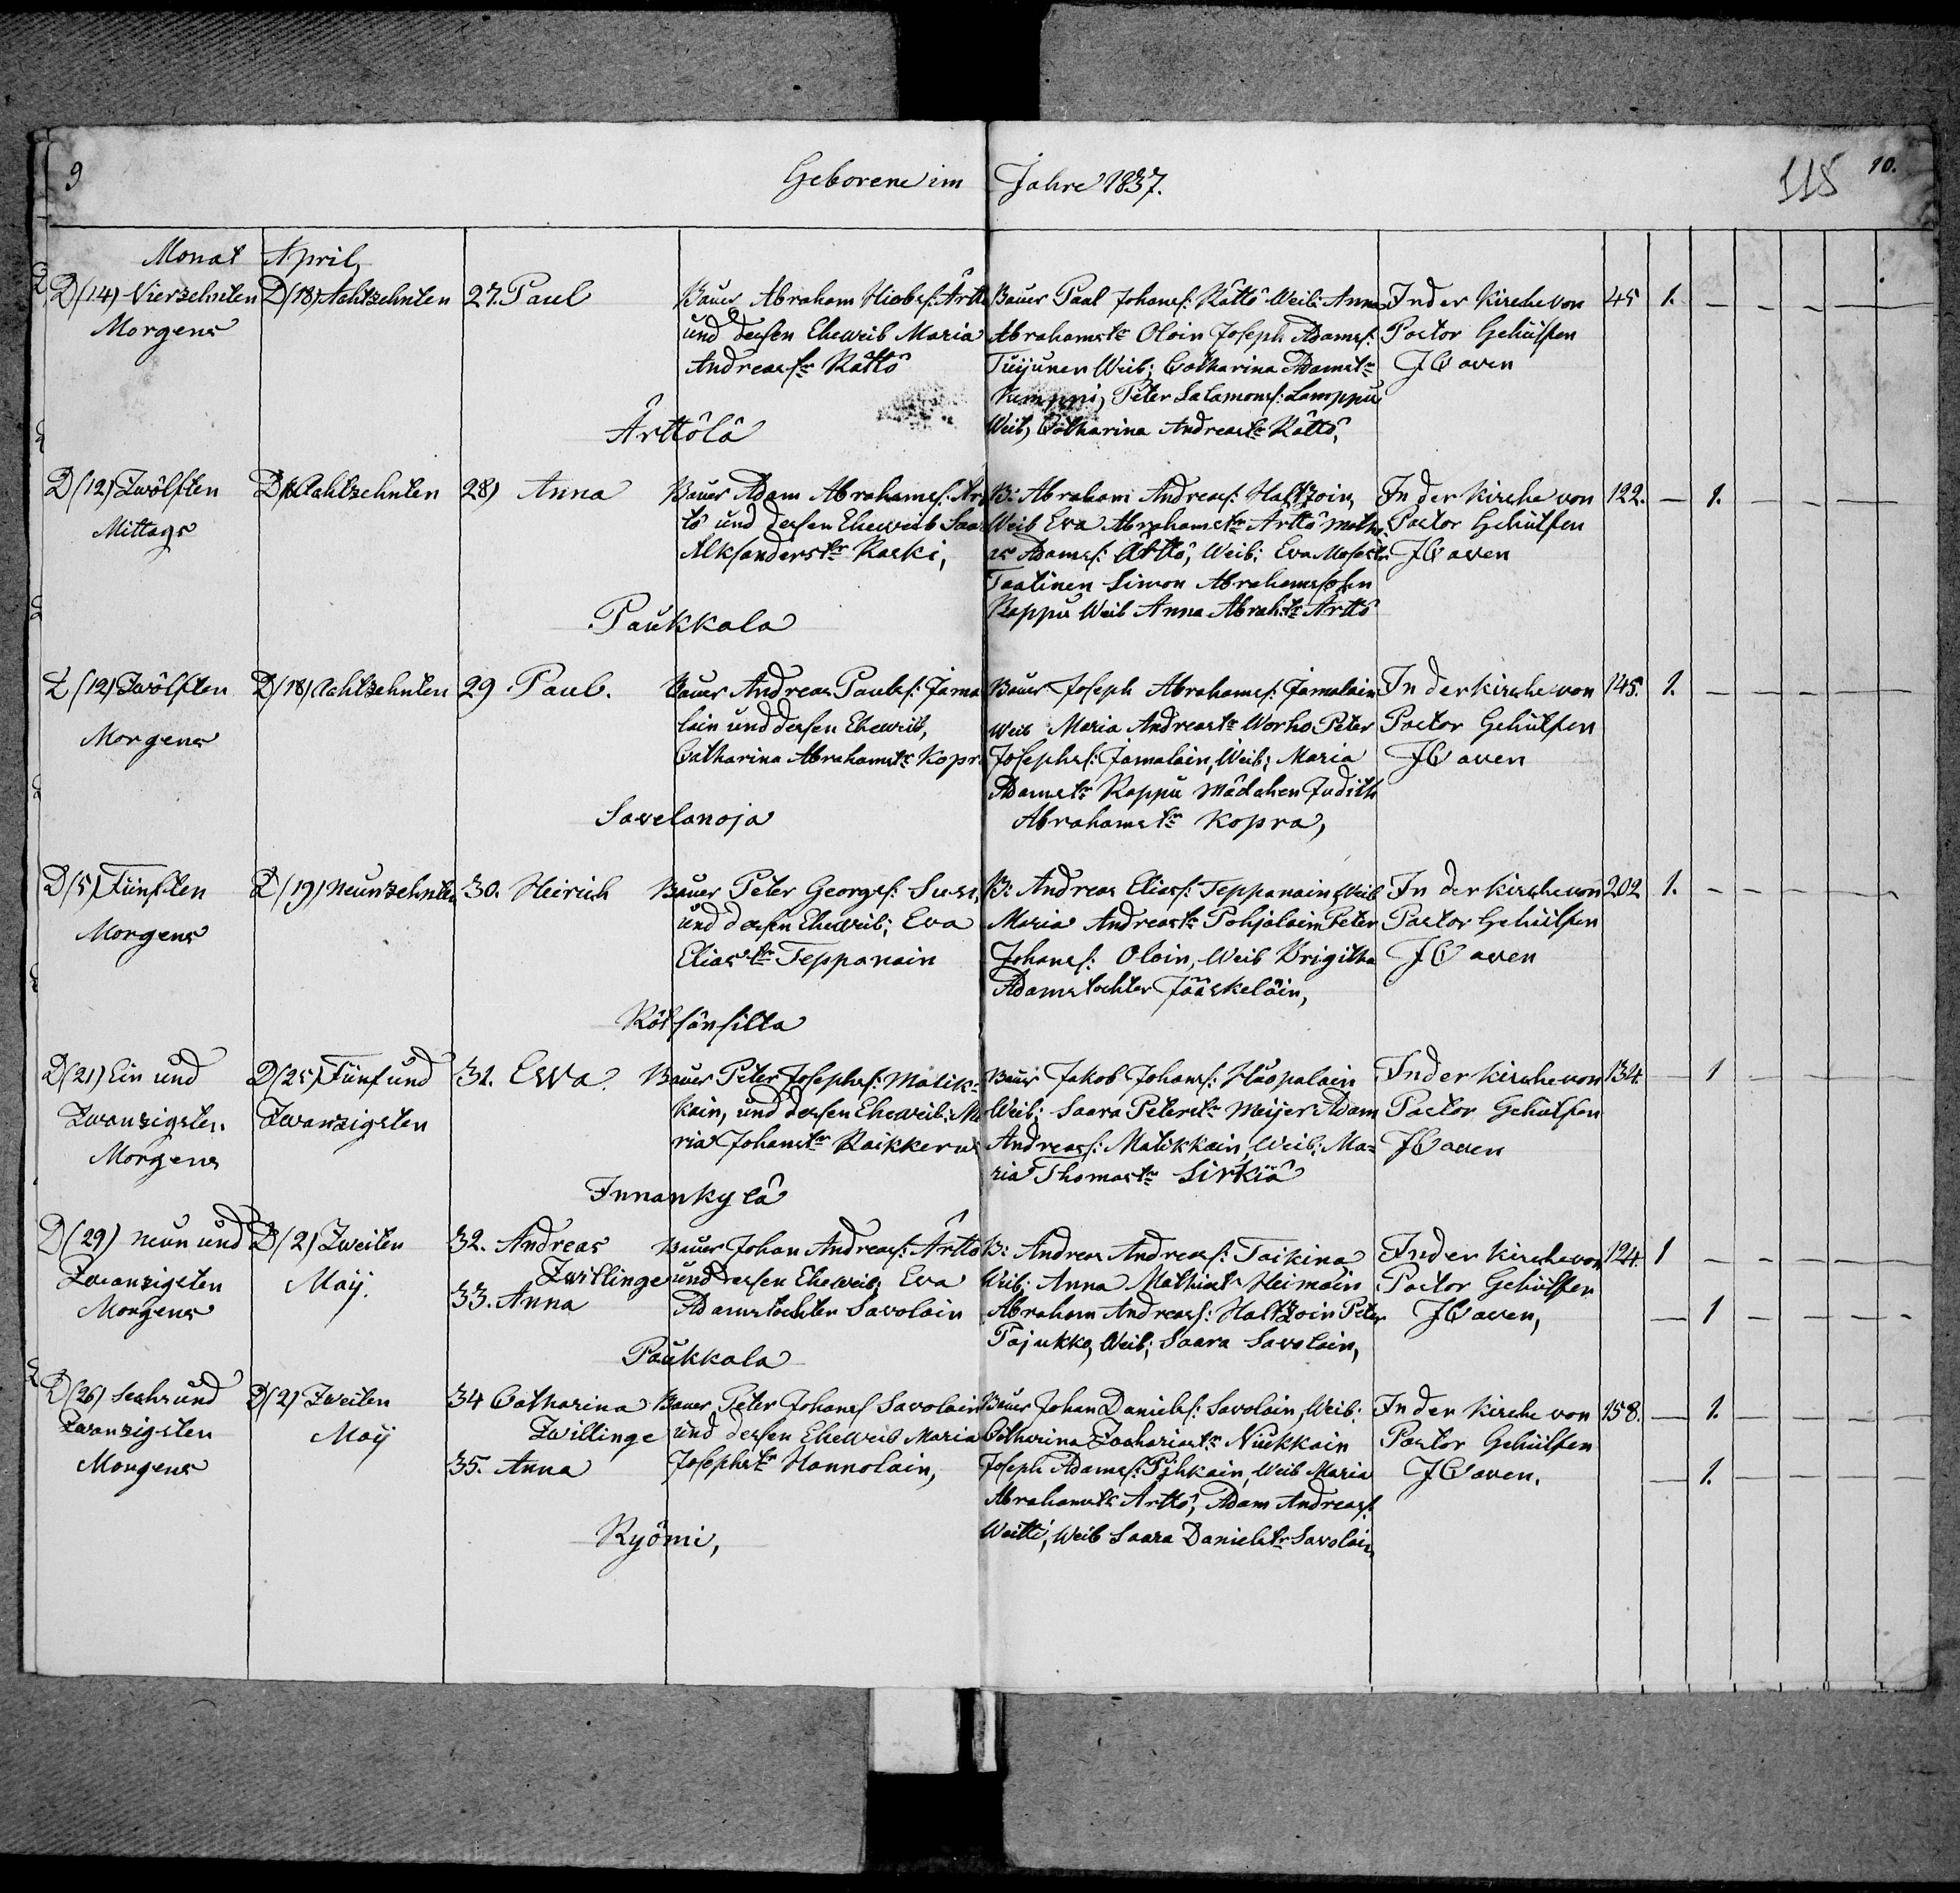 9
Geborene im Jahre 1837.
118
10.
Monat April
D (14) Vierzehnten
Morgens
D (18) Achtzehnten
27. Paul
Bauer Abraham Hiobs: Ärttö
und dessen Eheweib Maria
Andreastr Rättö
Bauer Paul Johans: Rättö Weib: Anna
Abrahamstr Oloin Joseph Adams:
Tuijunen Weib; Catharina Adamstr
Kemppi, Peter Salamons: Lamppu
Weib, Catharina Andreastr Rättö,
In der Kirche von
Pastor Gehülfen
45 1. – – – – –
Ärttölä
D (12) Zwölften
Mittags
D (18) Achtzehnten
28) Anna
Bauer Adam Abrahams: Ärt
tö und dessen Eheweib Saar
Alksanderstr Raski,
B: Abraham Andreas: Haltzoin,
Weib Eva Abrahamstr Arttö Mathi
as Adams: Ärttö, Weib: Eva Mosestr
Taatinen Simon Abrahamssohn
Rappu Weib Anna Abrahstr Arttö
In der Kirche von
Pastor Gehülfen
122. – 1. – – – –
Paukkala
D (12) Zwölften
Morgens
D (18) Achtzehnten
29. Paul.
Bauer Andreas Pauls: Jama
lain und dessen Eheweib,
Catharina Abrahamstr Kopra
Bauer Joseph Abrahams: Jamalain
Weib Maria Andreastr Worho Peter
Josephs: Jamalain, Weib; Maria
Adamstr Rappu Mädchen Judith
Abrahamstr Kopra,
In der Kirche von
Pastor Gehülfen
145. 1. – – – – –
Savelanoja
D (5) Fünften
Morgens
D (19) Neunzehnten
30. Heirich
Bauer Peter Georgs: Susi,
und dessen Eheweib; Eva
Eliastr Teppanain
B: Andreas Elias: Teppanain Weib
Maria Andreastr Pohjalain Peter
Johans: Oloin, Weib Brigitha
Adamstochter Jääskeläin,
In der Kirche von
Pastor Gehülfen
202 1. – – – – –
D (21) Ein und
Zwanzigsten
Morgens
D (25) Fünf und
Zwanzigsten
31. Ewa
Bauer Peter Josephs: Matik=
kain, und dessen Eheweib: Ma
ria Johanstr Raikkerus
Bauer Jakob Johans: Huopalain
Weib: Saara Peterstr Meijer Adam
Andreas: Matikkain, Weib: Ma=
ria Thomastr Sirkiä
In der Kirche von
Pastor Gehülfen
134. – 1 – – – –
Innankylä
D (29) Neun und
Zwanzigsten
Morgens
D (2) Zweiten
Maij.
32. Andreas
Zwillinge
33. Anna
Bauer Johan Andreas: Ärttö
und dessen Eheweib; Eva
Adamstochter Savolain
B: Andreas Andreas: Taikina
Weib: Anna Mathiastr Heimoin
Abraham Andreas: Haltzoin Peter
Pajukko, Weib; Saara Savolain,
In der Kirche von
Pastor Gehülfen
124. 1 – – – – –
– 1 – – – –
Paukkala
D (26) Sechs und
Zwanzigsten
Morgens
D (2) Zweiten
Maij
34 Catharina
Zwillinge
35. Anna
Bauer Peter Johans Savolain
und dessen Eheweib Maria
Josephstr Hannolain,
Bauer Johan Daniels: Savolain, Weib:
Catharina Zachariastr Nuckkain
Joseph Adams: Pihkain, Weib Maria
Abrahamstr Arttö, Adam Andreas:
Weitti, Weib Saara Danielstr Savolain,
In der Kirche von
Pastor Gehülfen
158. – 1. – – – –
– 1. – – – –
Ryömi,